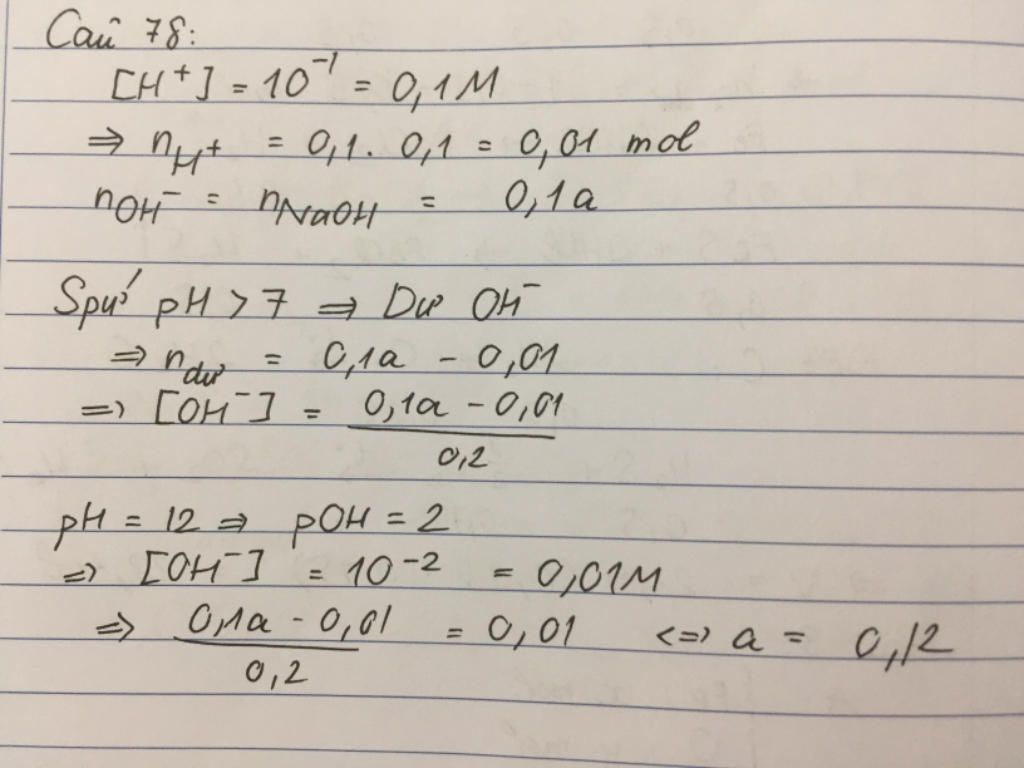 Câu 78:
[H⁺] = 10⁻¹ = 0,1M
⇒ n_H⁺ = 0,1. 0,1 = 0,01 mol
n_OH⁻ = n_NaOH = 0,1a
Spứ pH > 7 ⇒ Dư OH⁻
⇒ n_dư = 0,1a - 0,01
⇒ [OH⁻] = (0,1a - 0,01)/0,2
pH = 12 ⇒ pOH = 2
⇒ [OH⁻] = 10⁻² = 0,01M
⇒ (0,1a - 0,01)/0,2 = 0,01 <=> a = 0,12